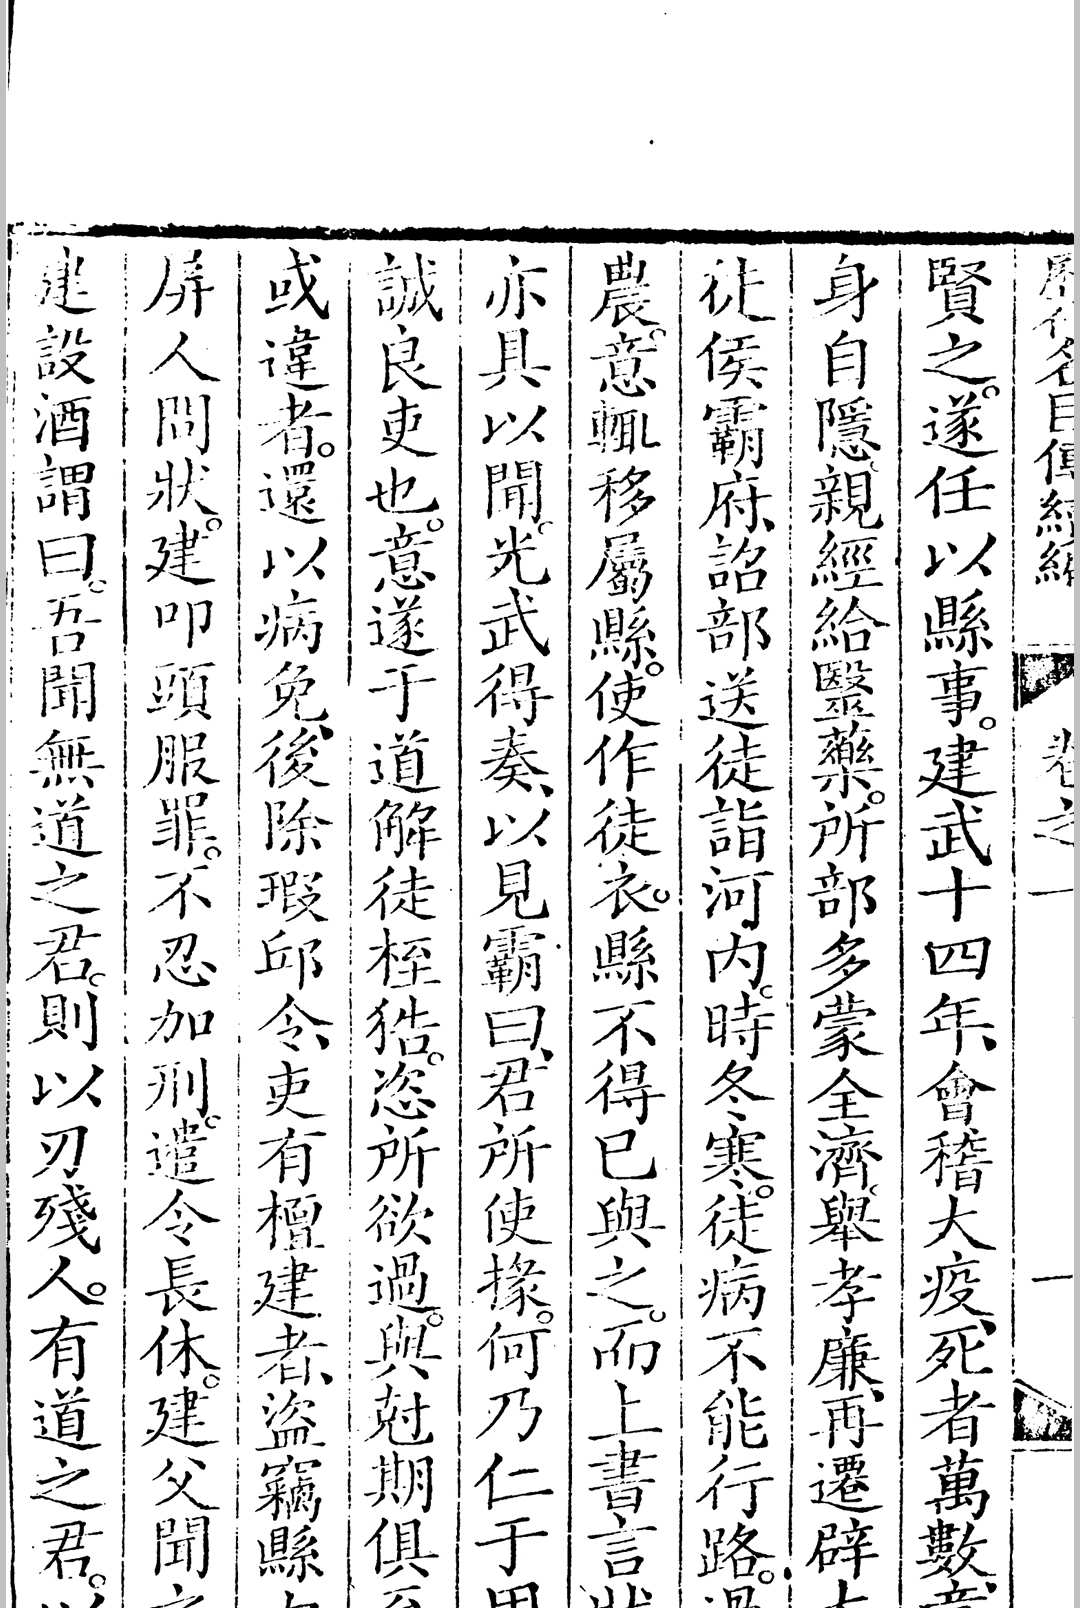 賢之。遂任以縣事。建武十四年、會稽大疫、死者萬數、意
身自隱親、經給醫藥。所部多蒙全濟。舉孝廉、再遷、辟大
徒侯霸府、詔部送徒詣河內。時冬寒。徒病不能行路。過
農。意輒移屬縣。使作徒衣。縣不得已與之。而上書言狀
亦具以聞。光武得奏、以見霸曰、君所使掾。何乃仁于用
誠良吏也。意遂于道解徒桎梏。恣所欲過。與尅期俱至
或違者。還以病免、後除瑕邱令、吏有檀建者、盜竊縣內
屏人問狀。建叩頭服罪。不忍加刑。遣令長休。建父聞之
建設酒謂曰。吾聞無道之君。則以刃殘人。有道之君。以